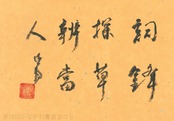 詞鋒
探草
辨當
人